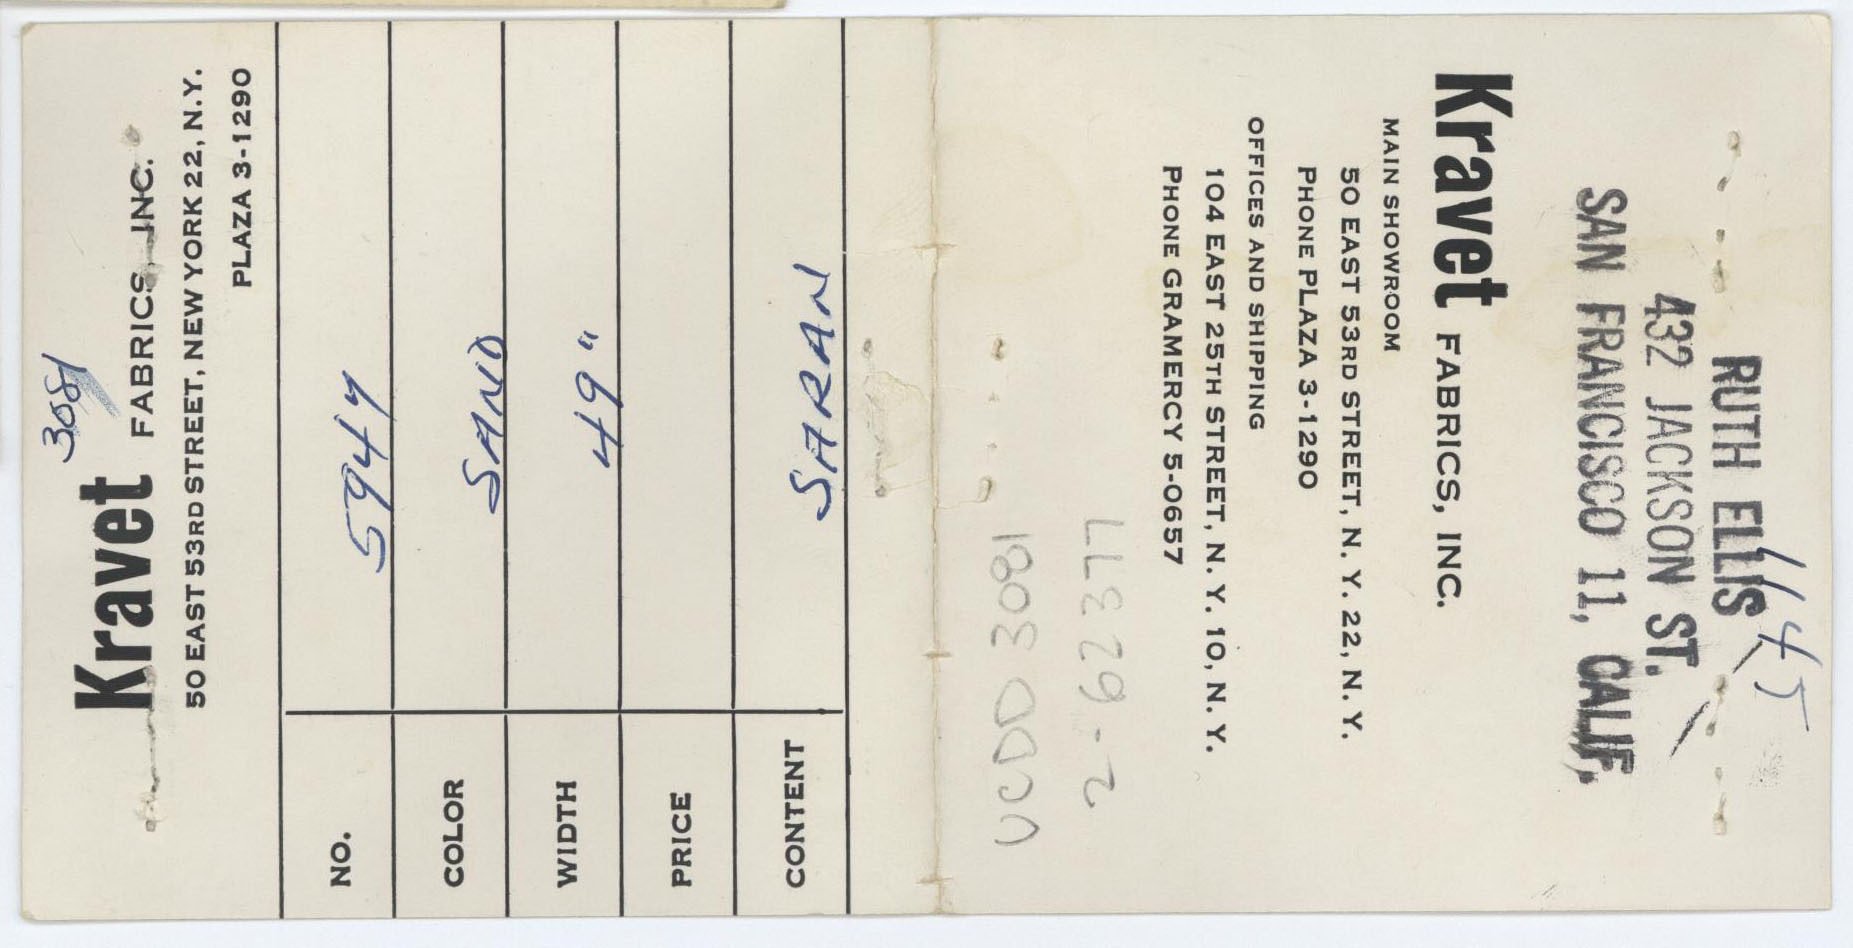 3081
Kravet FABRICS, INC.
50 EAST 53RD STREET, NEW YORK 22, N.Y.
PLAZA 3-1290
NO. 5947
COLOR SAND
WIDTH 49"
PRICE
CONTENT SARAN
RUTH ELLIS
432 JACKSON ST.
SAN FRANCISCO 11, CALIF.
1145
Kravet FABRICS, INC.
MAIN SHOWROOM
50 EAST 53RD STREET, N. Y. 22, N. Y.
PHONE PLAZA 3-1290
OFFICES AND SHIPPING
104 EAST 25TH STREET, N. Y. 10, N. Y.
PHONE GRAMERCY 5-0657
2-6237
UCDD 3081